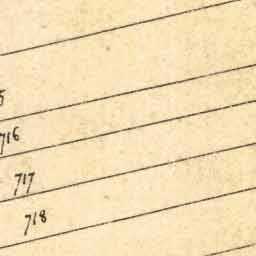 5
716
717
718